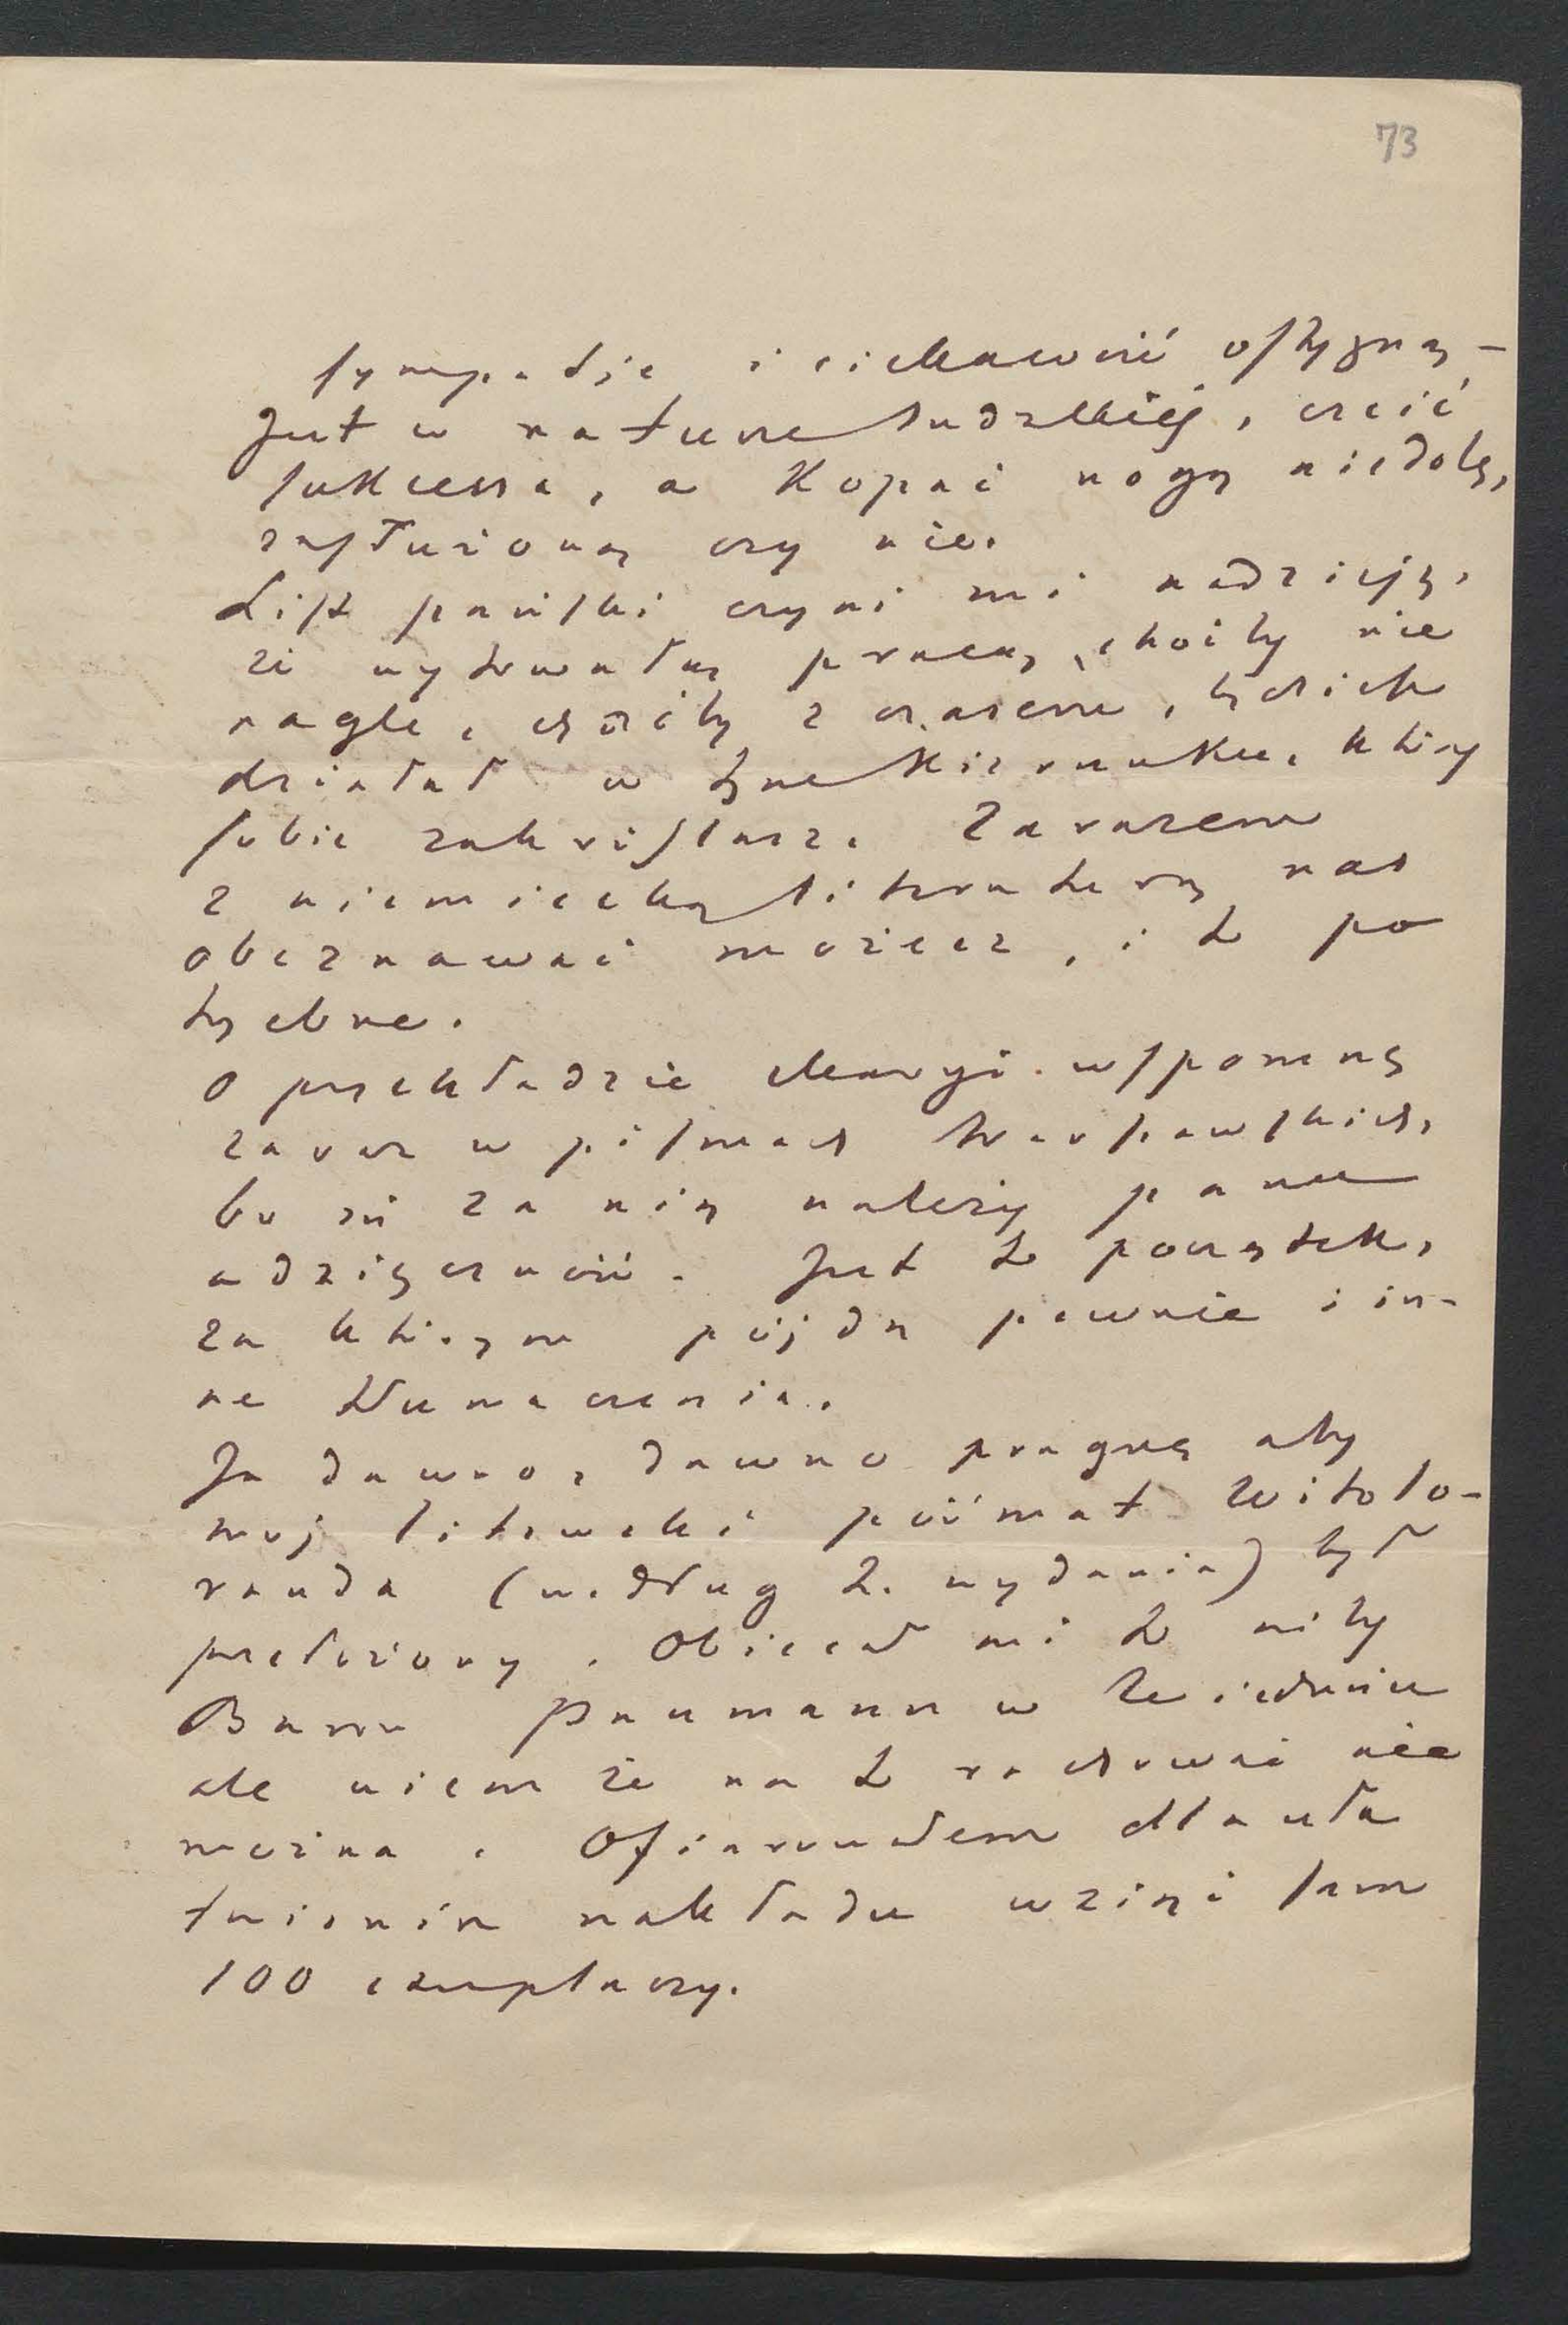 73
sympatje i ciekawość ostygną –
Jest w naturze ludzkiej, czcić
sukcessa, a kopać nogą niedolę,
zasłużoną czy nie.
List pański czyni mi nadzieję,
że wytrwałą pracą, choćby nie
nagle, choćby z czasem, będzieсie
działał w tym kierunku, który
sobie zakréślasz. Zarazem
z niemiecką literaturą nas
obeznawać możesz, i to po
trzebne.
O przekładzie Maryi wspomnę
zaraz w pismach warszawskich,
bo się za nią należy panu
wdzięczność. Jest to początek,
za którym pójdą pewnie i in-
ne tłumaczenia.
Ja dawno, dawno pragnę aby
mój litewski poémat Witolo-
rauda (według 2. wydania) był
przełożony. Obiecał mi to niby
Baron Paumann w Wiedniu
ale wiem że na to rachować nie
można. Ofiarowałem dla uła
twienia nakładu wziąć sam
100 exemplarzy.